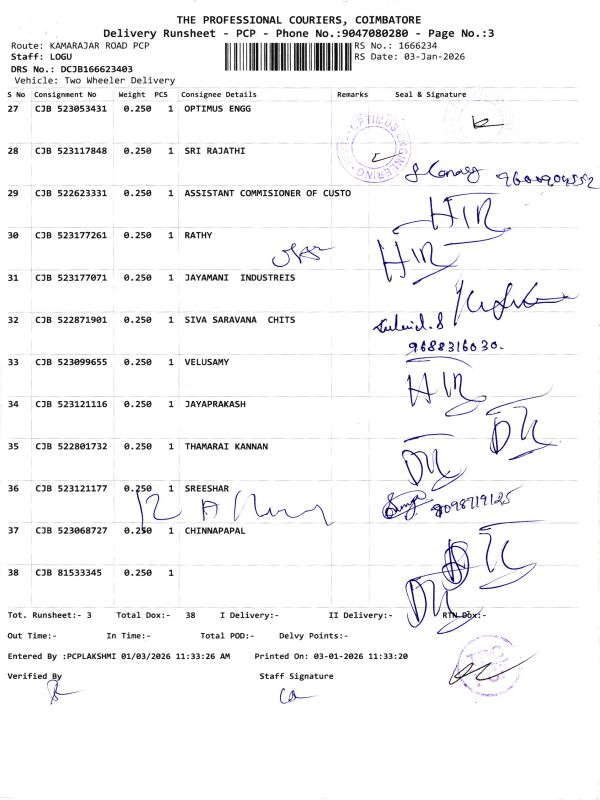 THE PROFESSIONAL COURIERS, COIMBATORE
Delivery Runsheet - PCP - Phone No.:9047080280 - Page No.:3
Route: KAMARAJAR ROAD PCP RS No.: 1666234
Staff: LOGU RS Date: 03-Jan-2026
DRS No.: DCJB166623403
Vehicle: Two Wheeler Delivery
S No Consignment No Weight PCS Consignee Details Remarks Seal & Signature
27 CJB 523053431 0.250 1 OPTIMUS ENGG
OPTIMUS ENGINEERING
28 CJB 523117848 0.250 1 SRI RAJATHI
29 CJB 522623331 0.250 1 ASSISTANT COMMISIONER OF CUSTO
30 CJB 523177261 0.250 1 RATHY
31 CJB 523177071 0.250 1 JAYAMANI INDUSTREIS
32 CJB 522871901 0.250 1 SIVA SARAVANA CHITS
9688316030.
33 CJB 523099655 0.250 1 VELUSAMY
34 CJB 523121116 0.250 1 JAYAPRAKASH
35 CJB 522801732 0.250 1 THAMARAI KANNAN
36 CJB 523121177 0.250 1 SREESHAR
37 CJB 523068727 0.250 1 CHINNAPAPAL
38 CJB 81533345 0.250 1
Tot. Runsheet:- 3 Total Dox:- 38 I Delivery:- II Delivery:- RTN Dox:-
Out Time:- In Time:- Total POD:- Delvy Points:-
Entered By :PCPLAKSHMI 01/03/2026 11:33:26 AM Printed On: 03-01-2026 11:33:20
Verified By Staff Signature